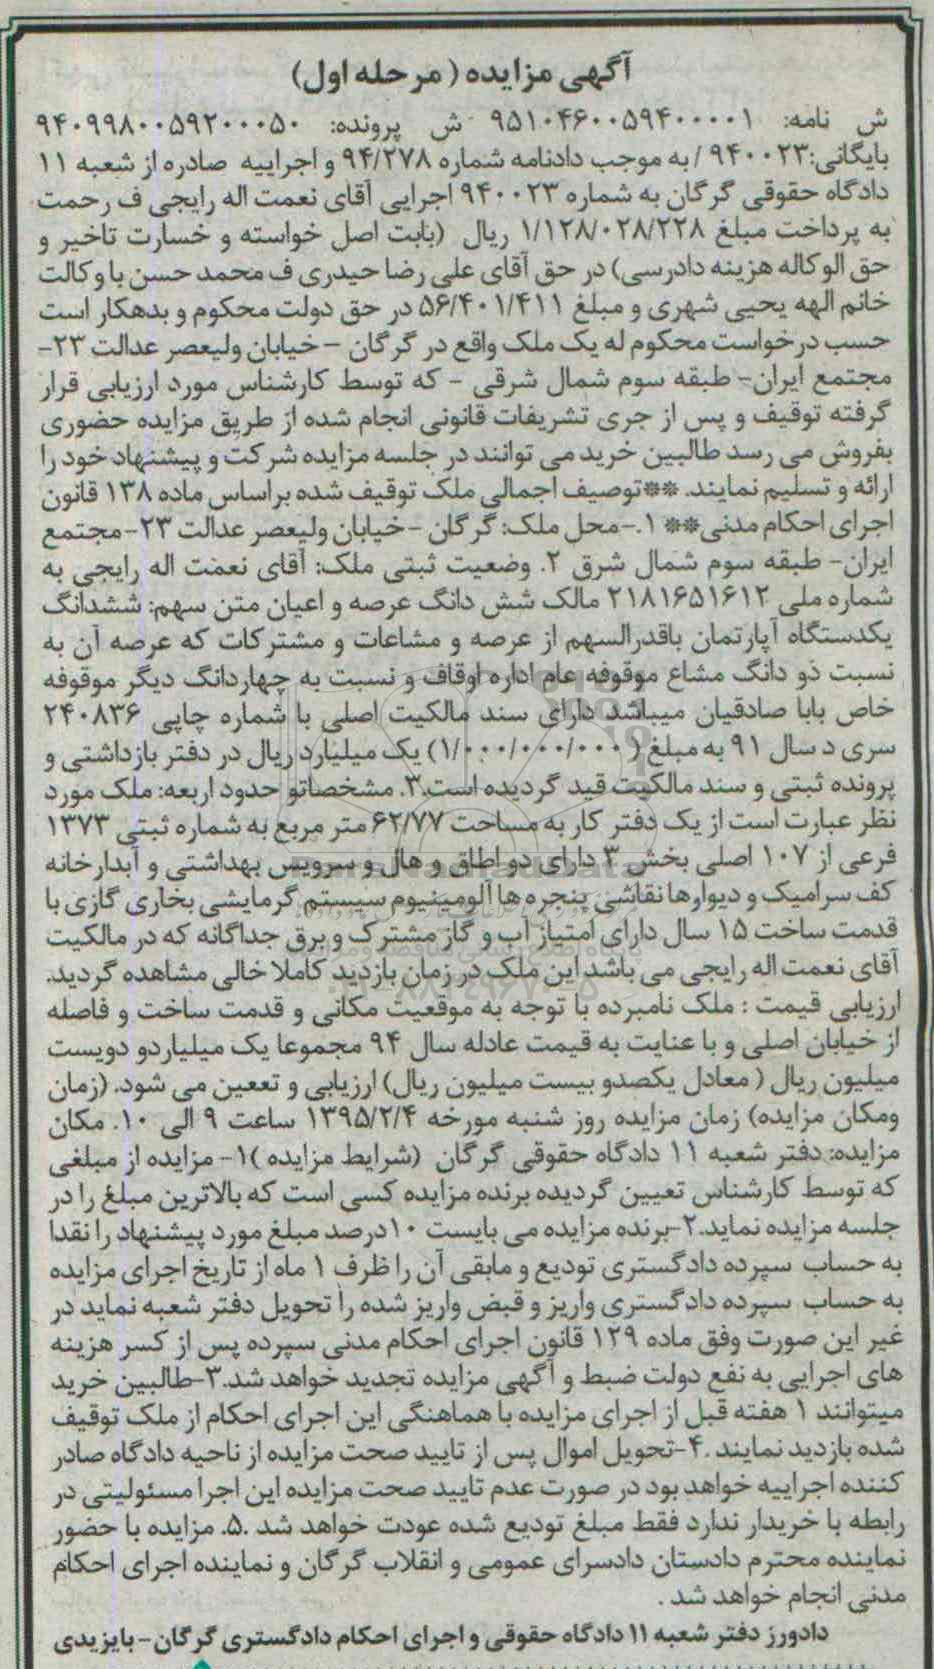 آگهی مزایده (مرحله اول)
ش نامه: ۹۵۱۰۴۶۰۰۵۹۴۰۰۰۰۱ ش پرونده: ۹۴۰۹۹۸۰۰۵۹۲۰۰۰۵۰
بایگانی:۹۴۰۰۲۳ / به موجب دادنامه شماره ۹۴/۲۷۸ و اجراییه صادره از شعبه ۱۱
دادگاه حقوقی گرگان به شماره ۹۴۰۰۲۳ اجرایی آقای نعمت اله رایجی ف رحمت
به پرداخت مبلغ ۱/۱۲۸/۰۲۸/۲۲۸ ریال (بابت اصل خواسته و خسارت تاخیر و
حق الوکاله هزینه دادرسی) در حق آقای علی رضا حیدری ف محمد حسن با وکالت
خانم الهه یحیی شهری و مبلغ ۵۶/۴۰۱/۴۱۱ در حق دولت محکوم و بدهکار است
حسب درخواست محکوم له یک ملک واقع در گرگان – خیابان ولیعصر عدالت ۲۳-
مجتمع ایران- طبقه سوم شمال شرقی - که توسط کارشناس مورد ارزیابی قرار
گرفته توقیف و پس از جری تشریفات قانونی انجام شده از طریق مزایده حضوری
بفروش می رسد طالبین خرید می توانند در جلسه مزایده شرکت و پیشنهاد خود را
ارائه و تسلیم نمایند. **توصیف اجمالی ملک توقیف شده براساس ماده ۱۳۸ قانون
اجرای احکام مدنی** ۱.-محل ملک: گرگان – خیابان ولیعصر عدالت ۲۳-مجتمع
ایران- طبقه سوم شمال شرق ۲. وضعیت ثبتی ملک: آقای نعمت اله رایجی به
شماره ملی ۲۱۸۱۶۵۱۶۱۲ مالک شش دانگ عرصه و اعیان متن سهم: ششدانگ
یکدستگاه آپارتمان باقدرالسهم از عرصه و مشاعات و مشترکات که عرصه آن به
نسبت ذو دانگ مشاع موقوفه عام اداره اوقاف و نسبت به چهاردانگ دیگر موقوفه
خاص بابا صادقیان میباشد دارای سند مالکیت اصلی با شماره چاپی ۲۴۰۸۳۶
سری د سال ۹۱ به مبلغ (۱/۰۰۰/۰۰۰/۰۰۰) یک میلیارد ریال در دفتر بازداشتی و
پرونده ثبتی و سند مالکیت قید گردیده است.۳. مشخصاتو حدود اربعه: ملک مورد
نظر عبارت است از یک دفتر کار به مساحت ۶۲/۷۷ متر مربع به شماره ثبتی ۱۳۷۳
فرعی از ۱۰۷ اصلی بخش ۳ دارای دو اطاق و هال و سرویس بهداشتی و آبدارخانه
کف سرامیک و دیوارها نقاشی پنجره ها آلومینیوم سیستم گرمایشی بخاری گازی با
قدمت ساخت ۱۵ سال دارای امتیاز آب و گاز مشترک و برق جداگانه که در مالکیت
آقای نعمت اله رایجی می باشد این ملک در زمان بازدید کاملا خالی مشاهده گردید.
ارزیابی قیمت : ملک نامبرده با توجه به موقعیت مکانی و قدمت ساخت و فاصله
از خیابان اصلی و با عنایت به قیمت عادله سال ۹۴ مجموعا یک میلیاردو دویست
میلیون ریال ( معادل یکصدو بیست میلیون ریال) ارزیابی و تععین می شود. (زمان
ومکان مزایده) زمان مزایده روز شنبه مورخه ۱۳۹۵/۲/۴ ساعت ۹ الی ۱۰. مکان
مزایده: دفتر شعبه ۱۱ دادگاه حقوقی گرگان (شرایط مزایده )۱- مزایده از مبلغی
که توسط کارشناس تعیین گردیده برنده مزایده کسی است که بالاترین مبلغ را در
جلسه مزایده نماید.۲-برنده مزایده می بایست ۱۰درصد مبلغ مورد پیشنهاد را نقدا
به حساب سپرده دادگستری تودیع و مابقی آن را ظرف ۱ ماه از تاریخ اجرای مزایده
به حساب سپرده دادگستری واریز و قبض واریز شده را تحویل دفتر شعبه نماید در
غیر این صورت وفق ماده ۱۲۹ قانون اجرای احکام مدنی سپرده پس از کسر هزینه
های اجرایی به نفع دولت ضبط و آگهی مزایده تجدید خواهد شد.۳-طالبین خرید
میتوانند ۱ هفته قبل از اجرای مزایده با هماهنگی این اجرای احکام از ملک توقیف
شده بازدید نمایند .۴-تحویل اموال پس از تایید صحت مزایده از ناحیه دادگاه صادر
کننده اجراییه خواهد بود در صورت عدم تایید صحت مزایده این اجرا مسئولیتی در
رابطه با خریدار ندارد فقط مبلغ تودیع شده عودت خواهد شد .۵. مزایده با حضور
نماینده محترم دادستان دادسرای عمومی و انقلاب گرگان و نماینده اجرای احکام
مدنی انجام خواهد شد .
دادورز دفتر شعبه ۱۱ دادگاه حقوقی و اجرای احکام دادگستری گرگان - بایزیدی